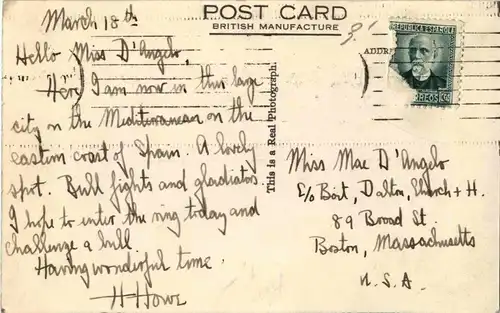 POST CARD
BRITISH MANUFACTURE
March 18th
Hello Miss D'Angelo,
Here I am now in this large
city on the Mediterranean on the
eastern coast of Spain. A lovely
spot. Bull fights and gladiators
I hope to enter the ring today and
challenge a bull.
Having wonderful time.
H Howe
This is a Real Photograph.
REPUBLICA ESPAÑOLA
Miss Mae D'Angelo
c/o Bort, Dalton, Church + H.
89 Broad St.
Boston, Massachusetts
U.S.A.